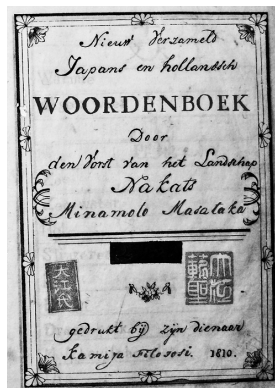 Nieuw Verzameld
Japans en hollandsch
WOORDENBOEK
Door
den Vorst van het Landschap
Nakats
Minamoto Masataka
大江氏
gedrukt bij zijn dienaar
Kamija Filososi. 1810.